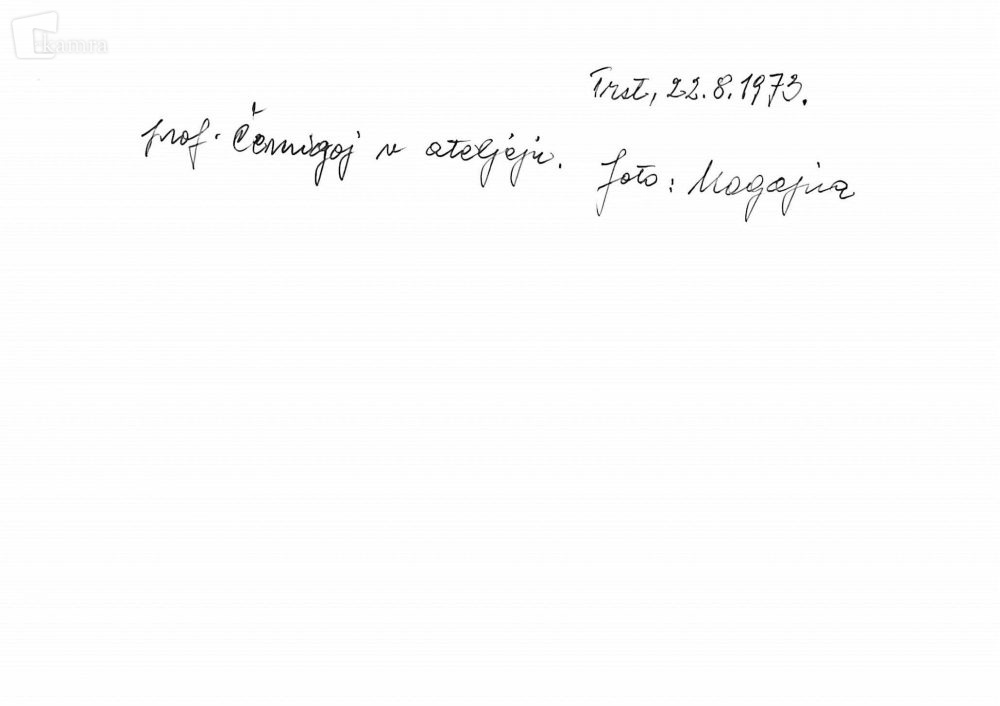 kamra
Trst, 22.8.1973.
prof. Černigoj v ateljeju.
foto: Magajna